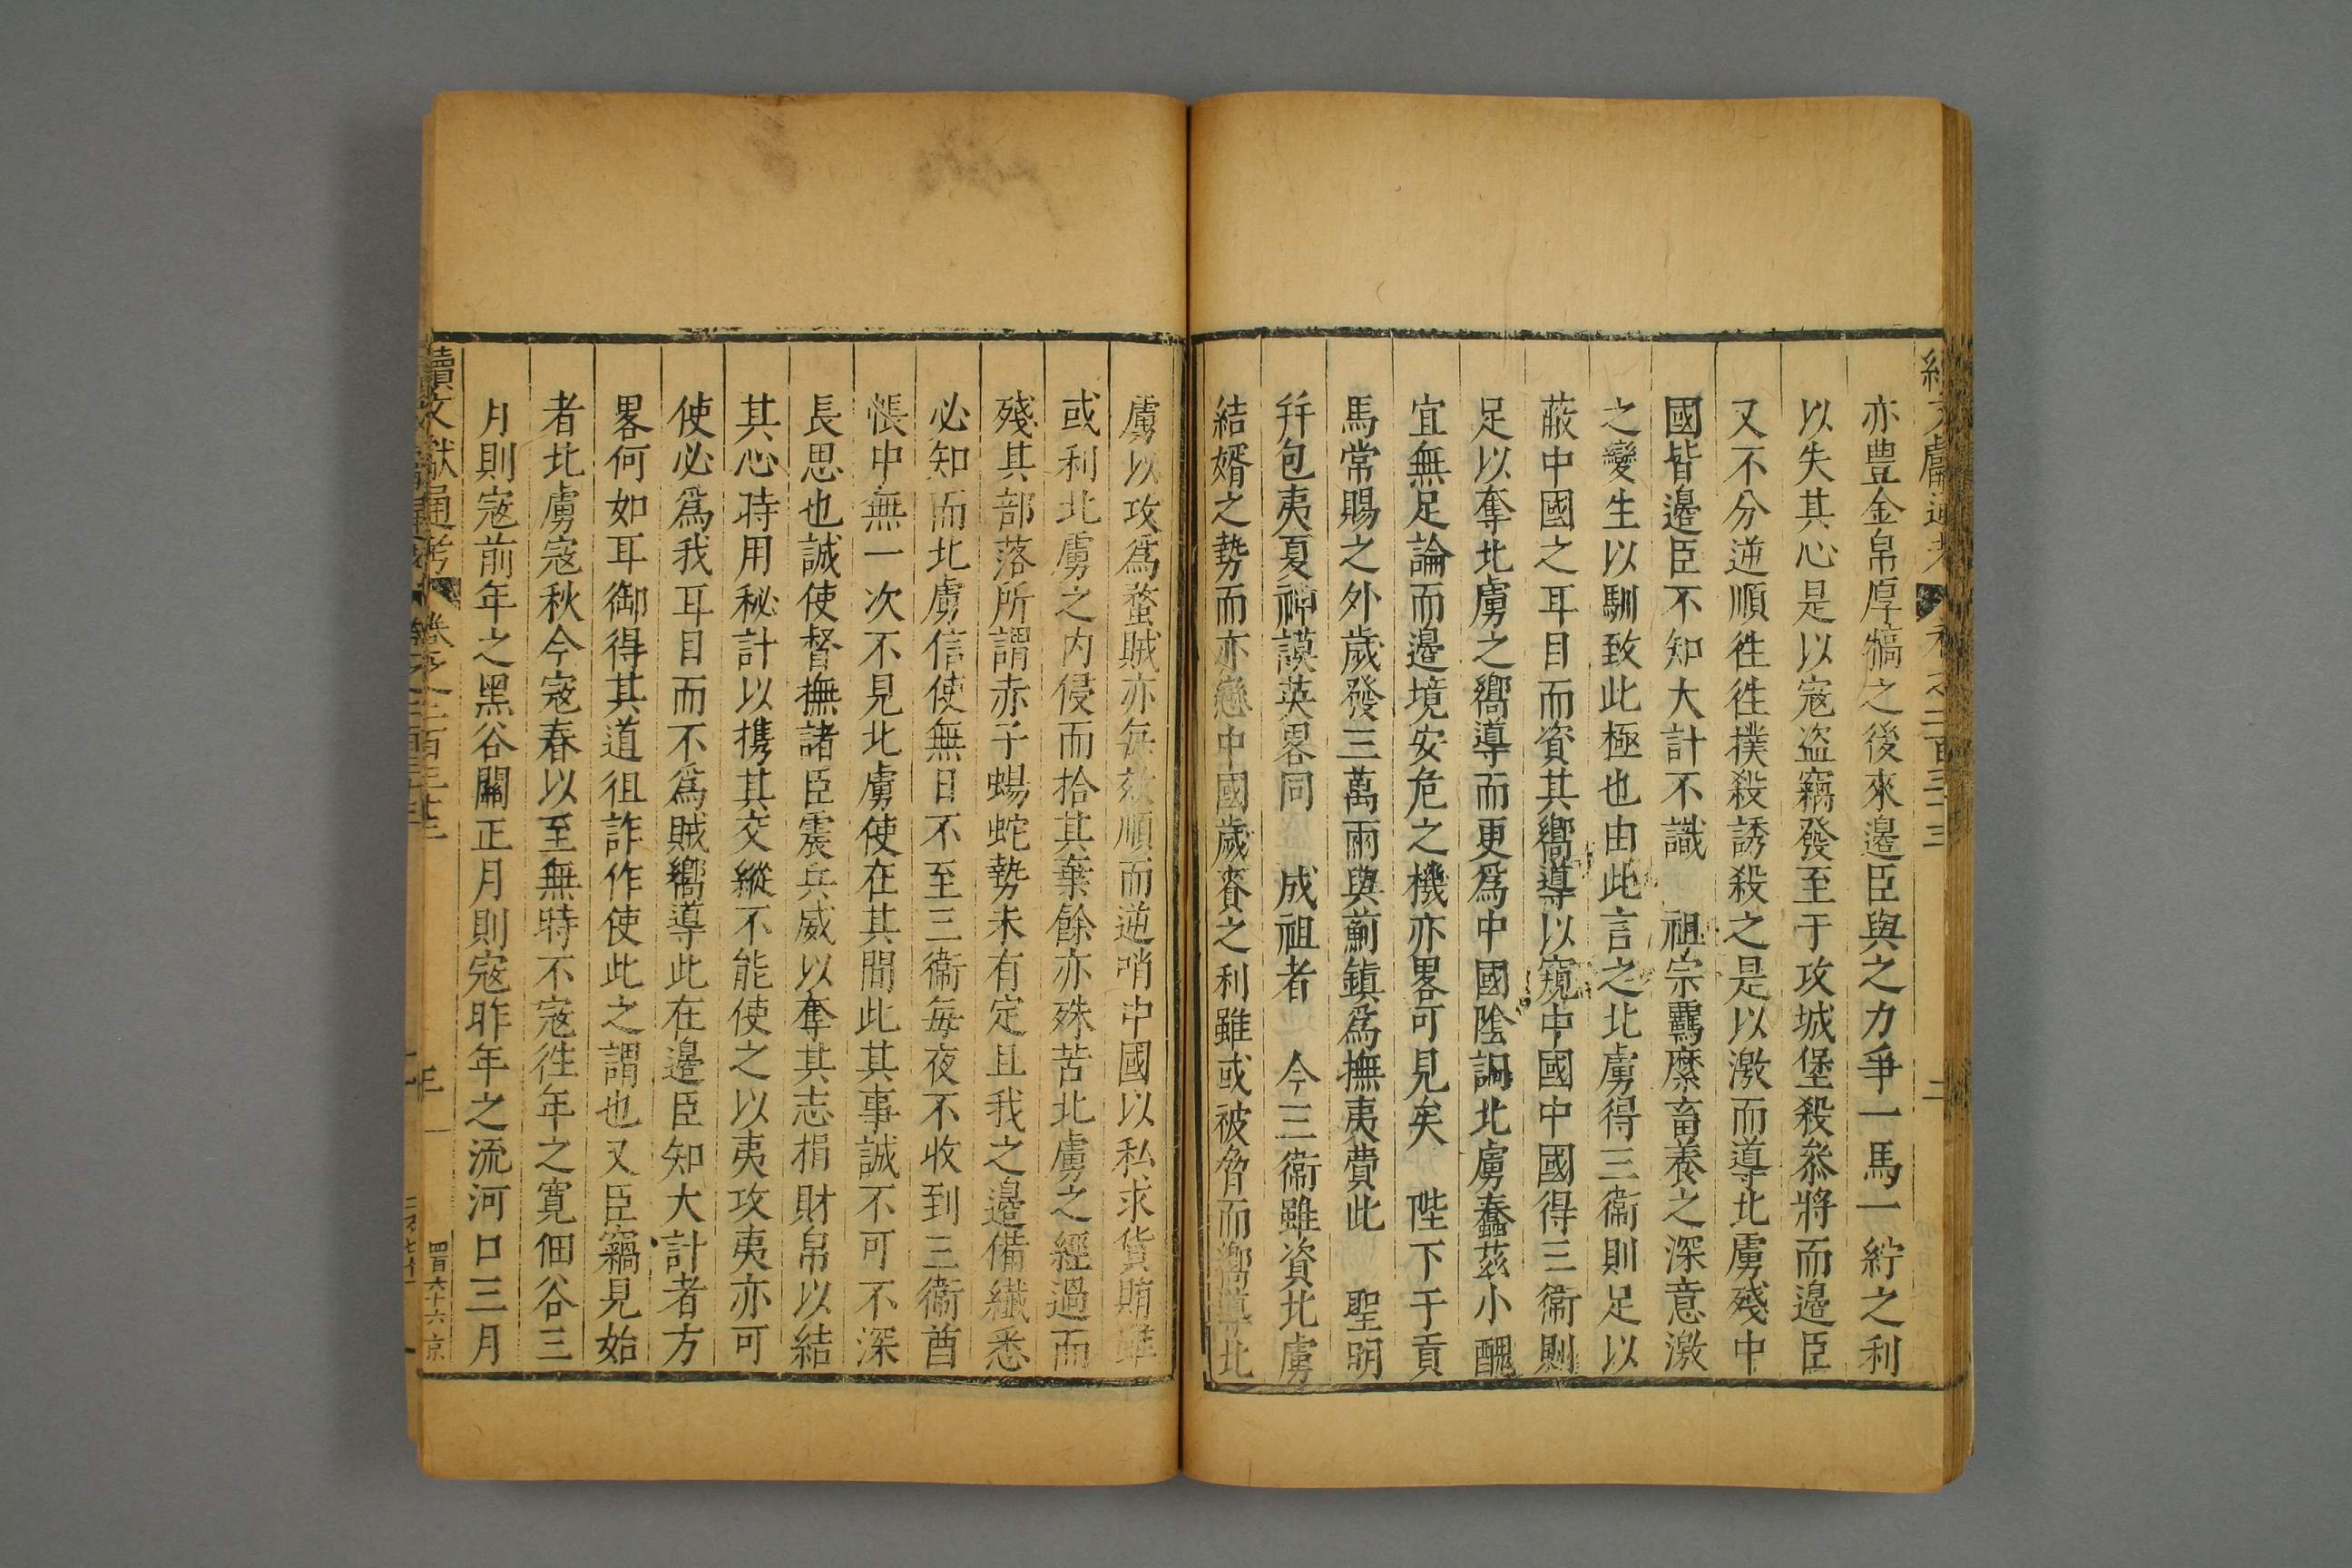 亦豊金帛厚犒之後來邉臣與之力爭一馬一紵之利
以失其心是以寇盗竊發至于攻城堡殺叅將而邉臣
又不分逆順徃徃撲殺誘殺之是以激而導北虜殘中
國皆邉臣不知大計不識 祖宗羈縻畜養之深意激
之變生以馴致此極也由此言之北虜得三衞則足以
蔽中國之耳目而資其嚮導以窺中國中國得三衞則
足以奪北虜之嚮導而更爲中國陰詗北虜蠢茲小醜
宜無足論而邉境安危之機亦畧可見矣 陛下于貢
馬常賜之外歲發三萬兩與薊鎮爲撫夷費此 聖明
幷包夷夏神謨英畧同 成祖者 今三衞雖資北虜
結婿之勢而亦戀中國歲賚之利雖或被脅而嚮導北
虜以攻爲蝥賊亦每效順而逆哨中國以私求貨賄雖
或利北虜之内侵而拾其棄餘亦殊苦北虜之經過而
殘其部落所謂赤子蜴蛇勢未有定且我之邉備纎悉
必知而北虜信使無日不至三衞每夜不收到三衞酋
帳中無一次不見北虜使在其間此其事誠不可不深
長思也誠使督撫諸臣震兵威以奪其志捐財帛以結
其心時用秘計以携其交縱不能使之以夷攻夷亦可
使必爲我耳目而不爲賊嚮導此在邉臣知大計者方
畧何如耳御得其道徂詐作使此之謂也又臣竊見始
者北虜寇秋今寇春以至無時不寇徃年之寛佃谷三
月則寇前年之黑谷關正月則寇昨年之流河口三月
續文獻通考 卷之二百三十三
四百六十六 京